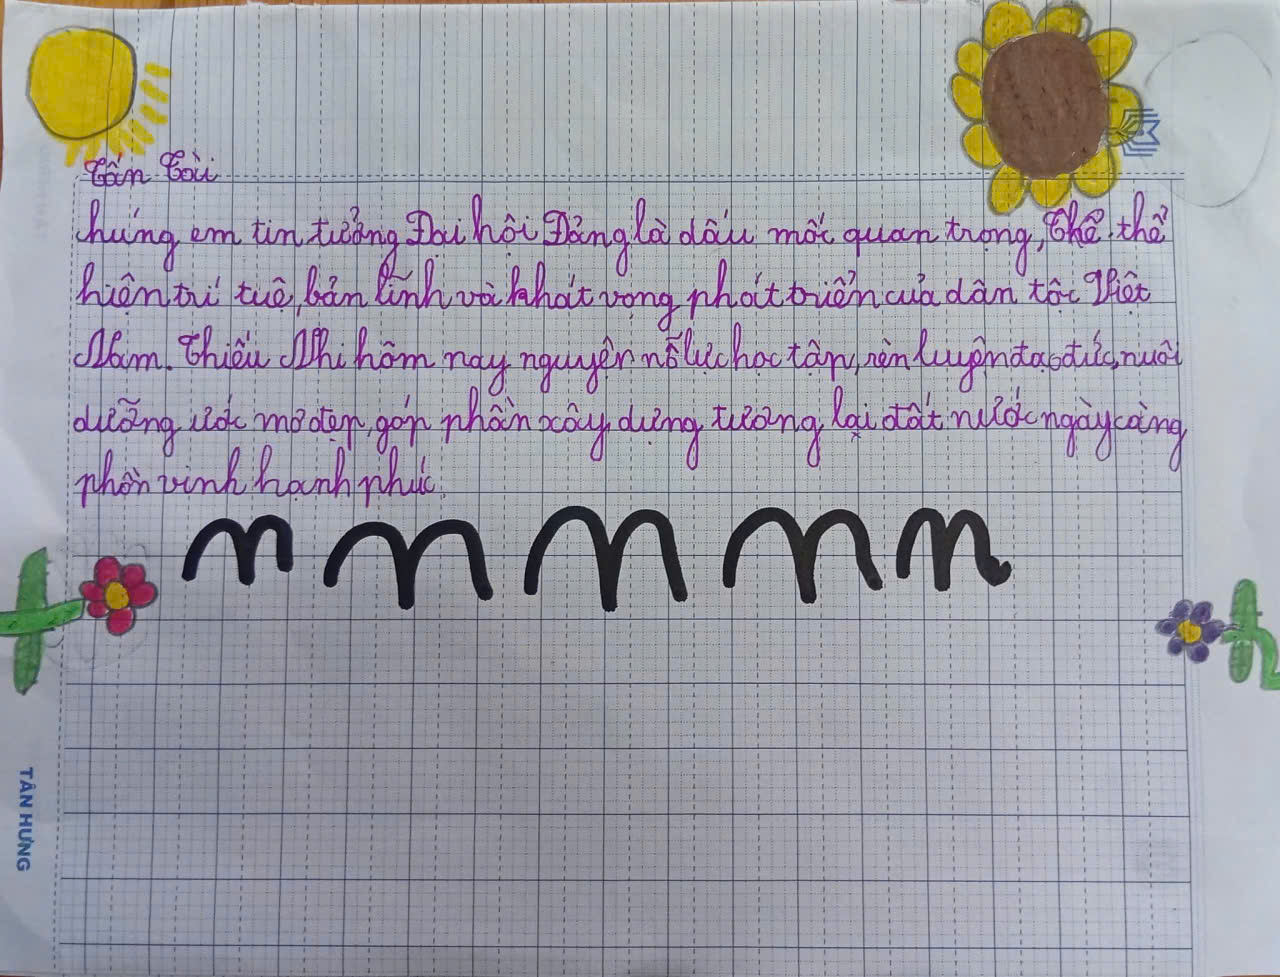 Tấn Tài
Chúng em tin tưởng Đại hội Đảng là dấu mốc quan trọng, Thể thể
hiện trí tuệ, bản lĩnh và khát vọng phát triển của dân tộc Việt
Nam. Thiếu Nhi hôm nay nguyện nỗ lực học tập, rèn luyện đạo đức, nuôi
dưỡng ước mơ đẹp, góp phần xây dựng tương lại đất nước ngày càng
phồn vinh hạnh phúc.
TÂN HƯNG